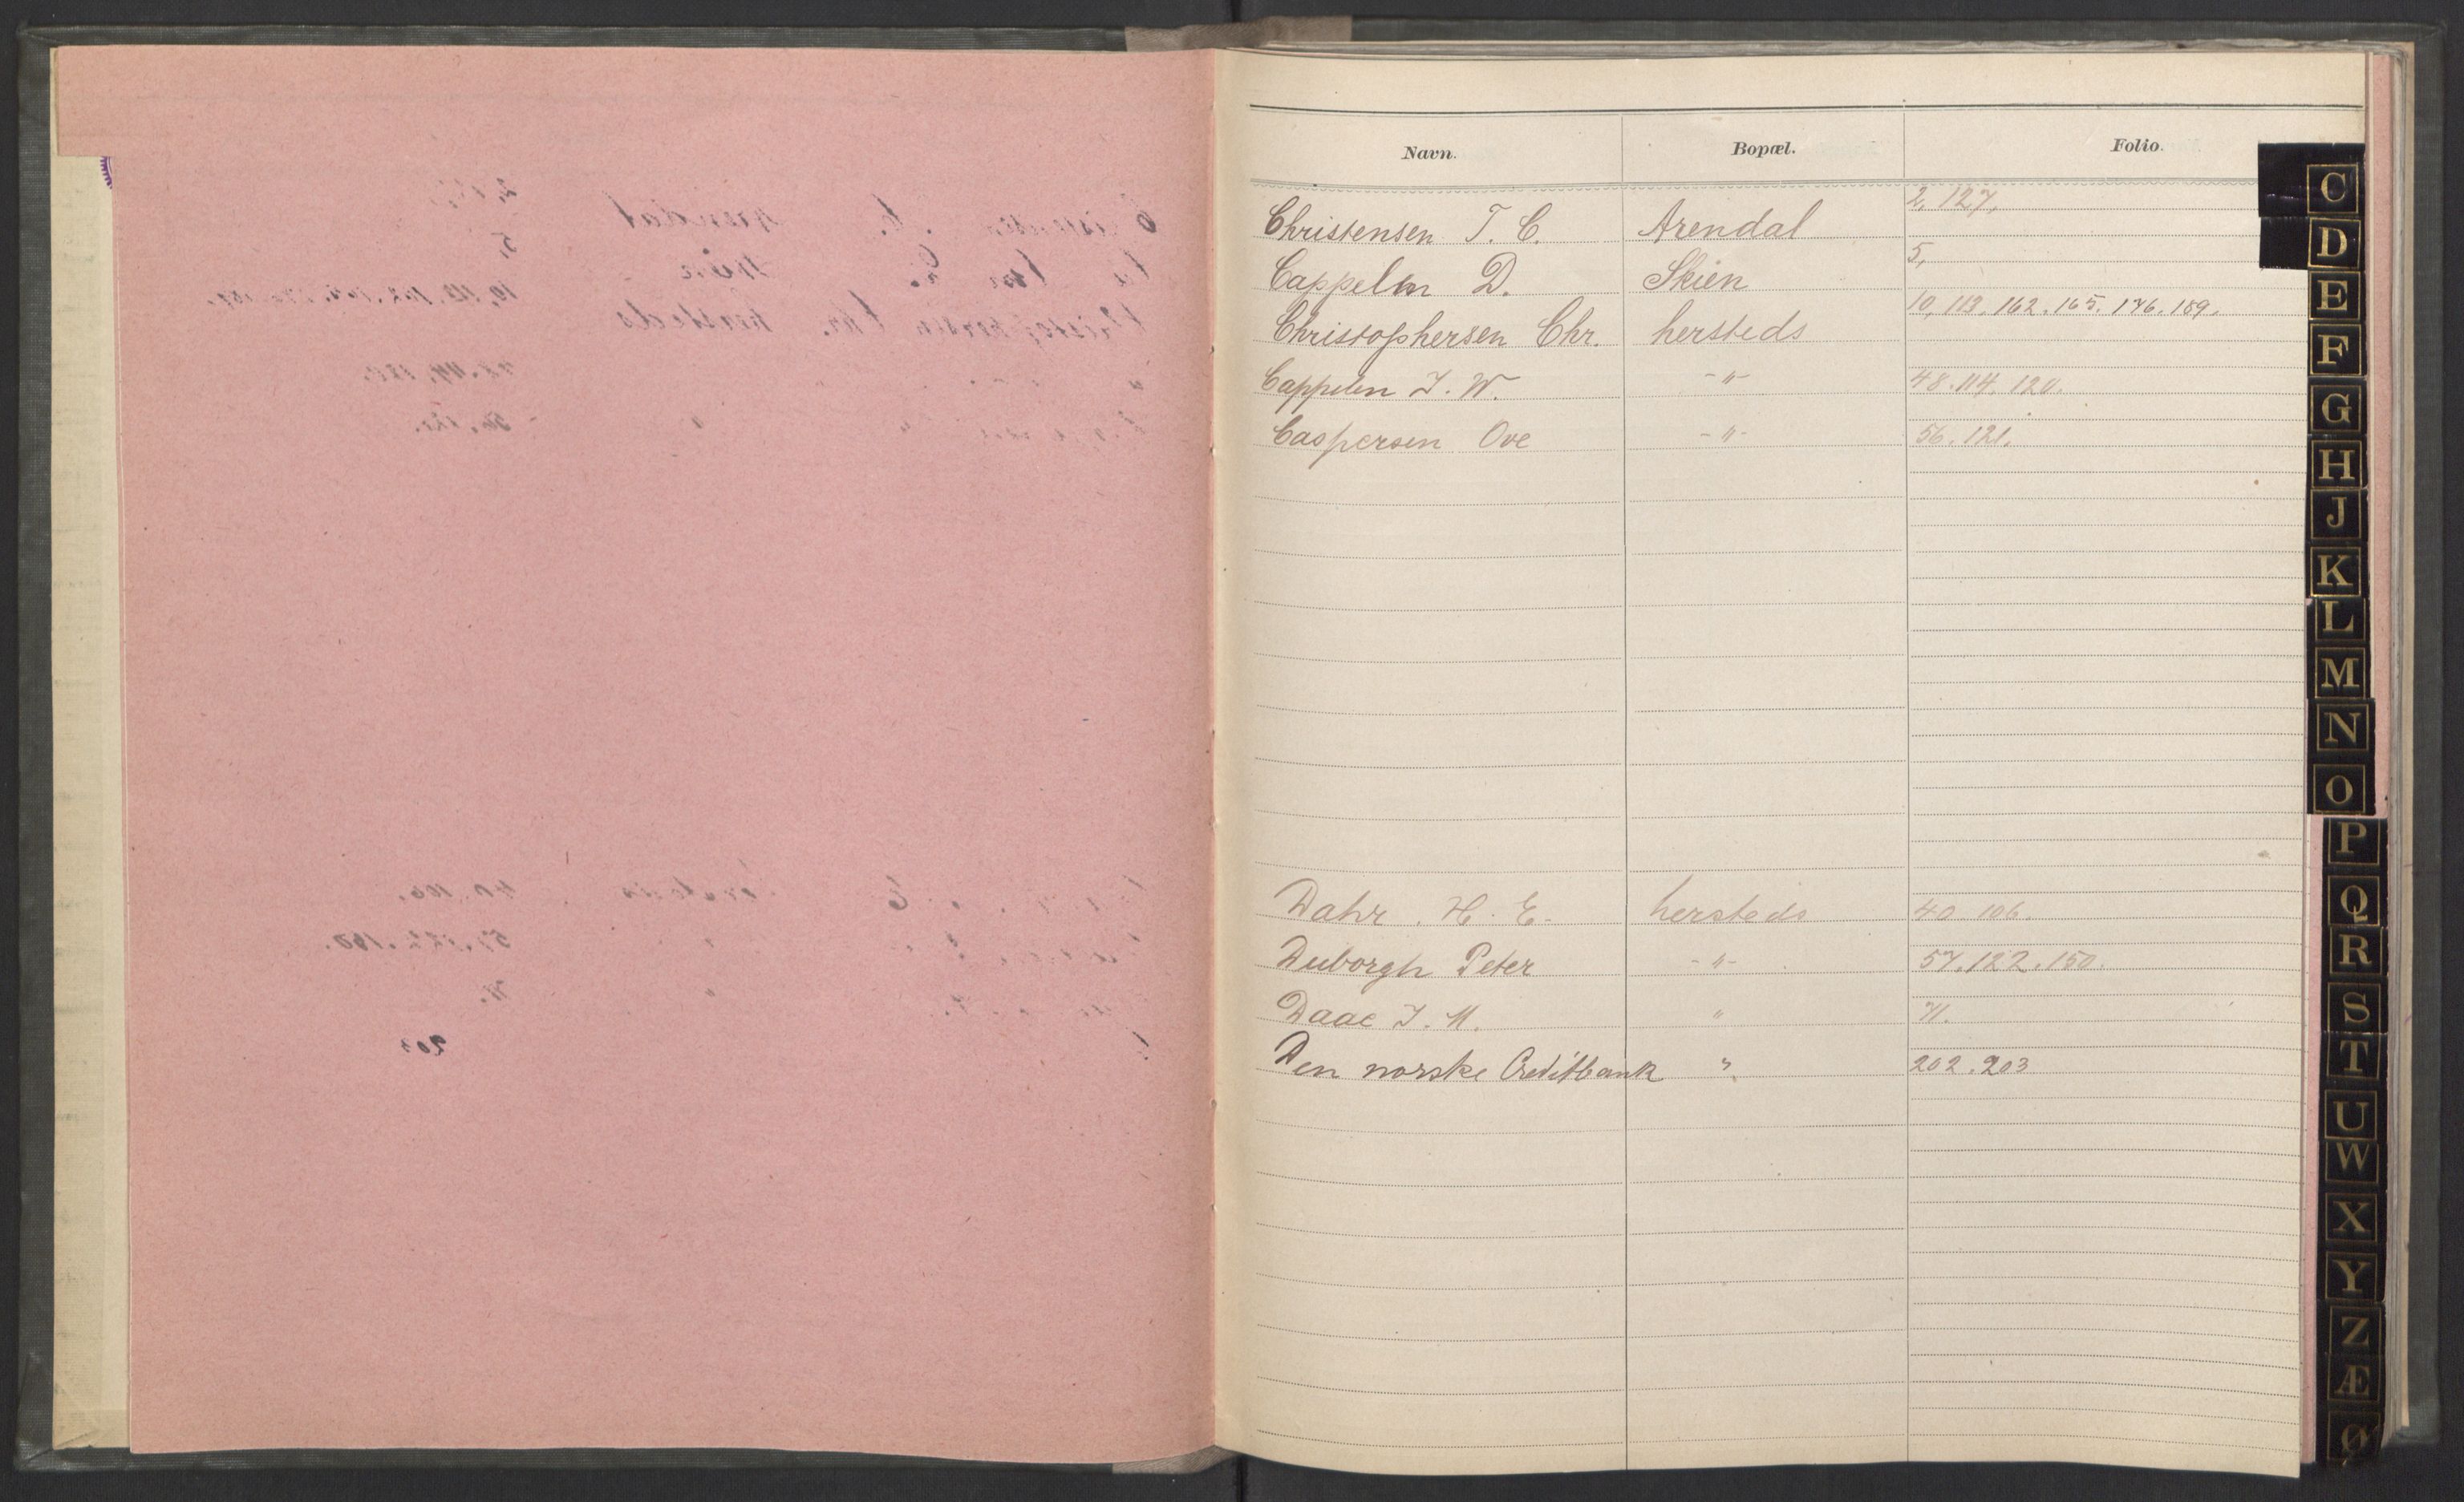 Navn. Bopæl. Folio.
Christensen T. C. Arendal 2, 127,
Cappelen D. Skien 5,
Christophersen Chr. hersteds 10, 113. 162. 165. 176. 189.
Cappelen J. W. -"- 48. 114. 120.
Caspersen Ove -"- 56. 121.
Dahr. H. E. hersteds 40. 106.
Duborgh Peter -"- 57. 122. 150.
Daae J. M. " 71.
Den norske Creditbank " 202. 203
C
D
E
F
G
H
J
K
L
M
N
O
P
Q
R
S
T
U
W
X
Y
Z
Æ
Ø